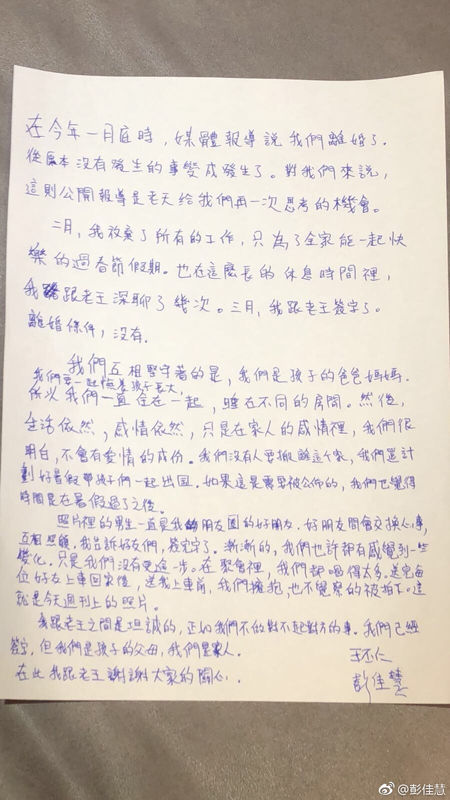 在今年一月底時，媒體報導說我們離婚了。
從原本沒有發生的事變成發生了。對我們來說，
這則公開報導是老天給我們再一次思考的機會。
二月，我放棄了所有的工作，只為了全家能一起快
樂的過春節假期。也在這麼長的休息時間裡，
我跟老王深聊了幾次。三月，我跟老王簽字了。
離婚條件，沒有.
我們互相堅守著的是，我們是孩子的爸爸媽媽.
我們要一起陪著孩子長大，
所以我們一直住在一起，睡在不同的房間。然後，
生活依然，感情依然，只是在家人的感情裡，我們很
明白，不會有愛情的成份。我們沒有人要搬離這個家，我們還計
劃好暑假帶孩子們一起出國。如果這是需要被公佈的，我們也覺得
時間是在暑假過了之後。
照片裡的男生一直是我朋友圈的好朋友。好朋友間會交換心事，
互相照顧，我告訴好友們，簽字了。漸漸的，我們也許都有感覺到一些
變化。只是我們沒有更進一步。在聚會裡，我們都喝得太多。送完每
位好友上車回家後，送我上車前，我們擁抱，也不意察的被拍下。這
就是今天週刊上的照片。
我跟老王之間是坦誠的，正如我們不做對不起對方的事。我們已經
簽字，但我們是孩子的父母，我們是家人。
在此我跟老王謝謝大家的關心.
王丕仁
彭佳慧
@彭佳慧